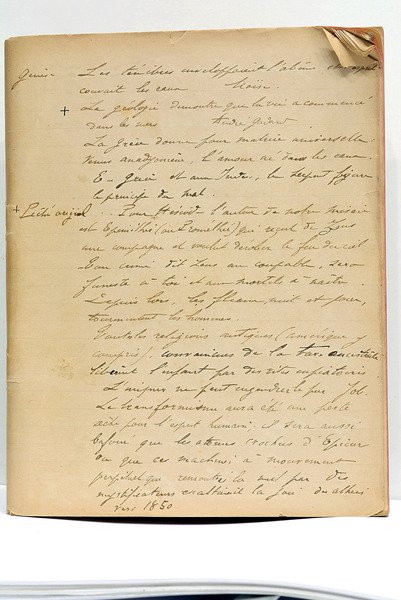 Genèse Les ténèbres enveloppaient l'abîme et un esprit
couvait les eaux Moïse.
+ La géologie démontre que la vie a commencé
dans les mers André Godard.
La Grèce donne pour matrice universelle:
Vénus anadyomène, l'amour né dans les eaux.
En Grèce et aux Indes, le serpent figure
le principe du mal.
+ Péché originel. Pour Hésiode l'auteur de notre misère
est Epiméthée (ou Prométhée) qui reçut de Zeus
une compagne et voulut dérober le feu du ciel
Ton crime dit Zeus au coupable, sera
funeste à toi et aux mortels à naître.
Depuis lors, les fléaux, nuit et jour,
tourmentent les hommes.
Toutes les religions antiques (amérique
compris), convaincues de la tare ancestrale
l'enfant par des rites expiatoires
L'impur ne peut engendrer le pur Job.
Le transformisme aura été une perte
sèche pour l'esprit humain; il sera aussi
bafoué que les atomes crochus d'Epicure
ou que ces machines à mouvement
perpétuel que remontées la nuit par des
mystificateurs exaltaient la joie des athées
vers 1850